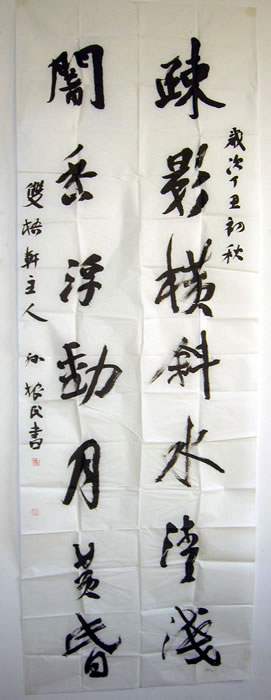 歲次丁丑初秋
疎影横斜水清淺
闇香浮動月黄昏
雙梧軒主人 孙振民書